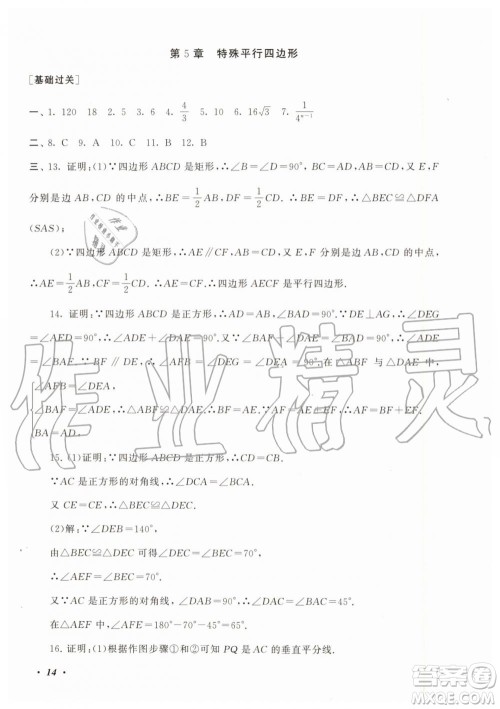 第 5 章 特殊平行四边形
[基础过关]
一、1. 120 18 2. 5 3. 6 4. 4/3 5. 6 6. 16√3 7. 1/4ⁿ⁻¹
二、8. C 9. A 10. B 11. C 12. B
三、13. 证明:(1)∵四边形 ABCD 是矩形,∴∠B=∠D=90°,AB=CD. 又 E,F
分别是边 AB,CD 的中点,∴BE=1/2AB,DF=1/2CD,∴BE=DF,∴△BEC≌△DFA
(SAS);
(2)∵四边形 ABCD 是矩形,∴AE∥CF,AB=CD. 又∵E,F 分别是边 AB,CD 的中点,
∴AE=1/2AB,CF=1/2CD,∴AE=CF,∴四边形 AECF 是平行四边形.
14. 证明:∵四边形 ABCD 是正方形,∴AD=AB,∠BAD=90°. ∵DE⊥AG,∴∠DEG
=∠AED=90°,∴∠ADE+∠DAE=90°. 又∵∠BAF+∠DAE=∠BAD=90°,∴∠ADE
=∠BAF. ∵BF∥DE,∴∠AFB=∠DEG=∠AED. 在△ABF 与△DAE 中,∵∠AFB
=∠DEA,∠BAF=∠ADE,AB=DA,∴△ABF≌△DAE,∴BF=AE. ∵AF=AE+EF,
∴AF=BF+EF.
15. (1)证明:∵四边形 ABCD 是正方形,∴CD=CB.
∵AC 是正方形的对角线,∴∠DCA=∠BCA.
又 CE=CE,∴△BEC≌△DEC.
(2)解:∵∠DEB=140°,
由△BEC≌△DEC 可得∠DEC=∠BEC=70°,
∴∠AEF=∠BEC=70°.
又∵AC 是正方形的对角线,∠DAB=90°,∴∠DAC=∠BAC=45°,
∴∠AFE=180°-70°-45°=65°.
16. 证明:(1)根据作图步骤①和②可知 PQ 是 AC 的垂直平分线.
• 14 •
作业精灵